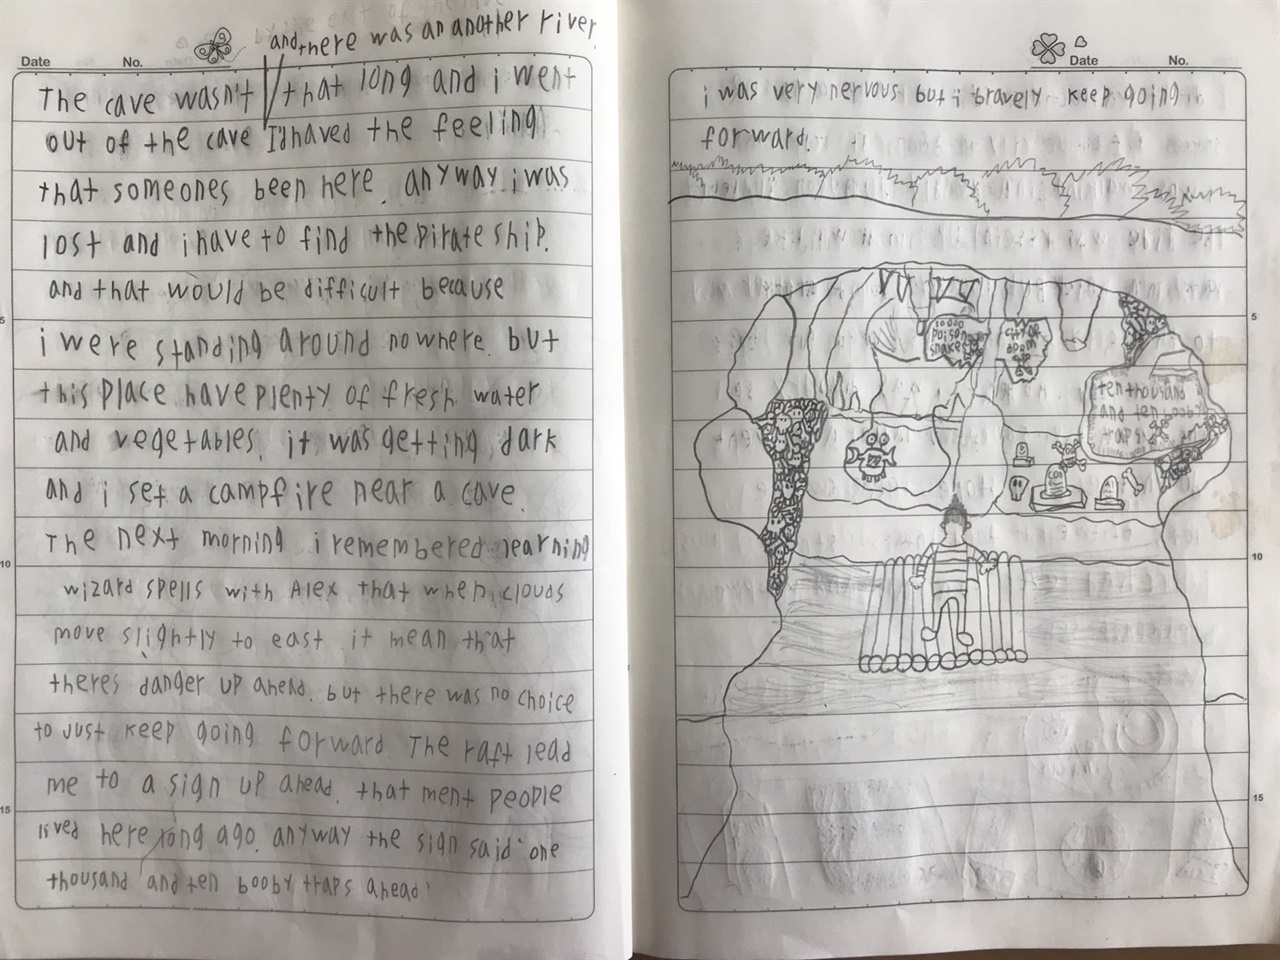 and there was an another river
Date No.
The cave wasn't that long and i went
out of the cave I'd haved the feeling
that someones been here. anyway i was
lost and i have to find the pirate ship.
and that would be difficult because
i were standing around nowhere. but
this place have plenty of fresh water
and vegetables. it was getting dark
and i set a campfire near a cave.
The next morning i remembered learning
wizard spells with Alex that when clouds
move slightly to east it mean that
theres danger up ahead. but there was no choice
to just keep going forward. The raft lead
me to a sign up ahead. that ment people
lived here long ago. anyway the sign said "one
thousand and ten booby traps ahead"
5
10
15
Date No.
i was very nervous but i bravely keep going
forward.
10000
poison
snakes
city of
doom
ten thousand
and ten
booby
traps
5
10
15